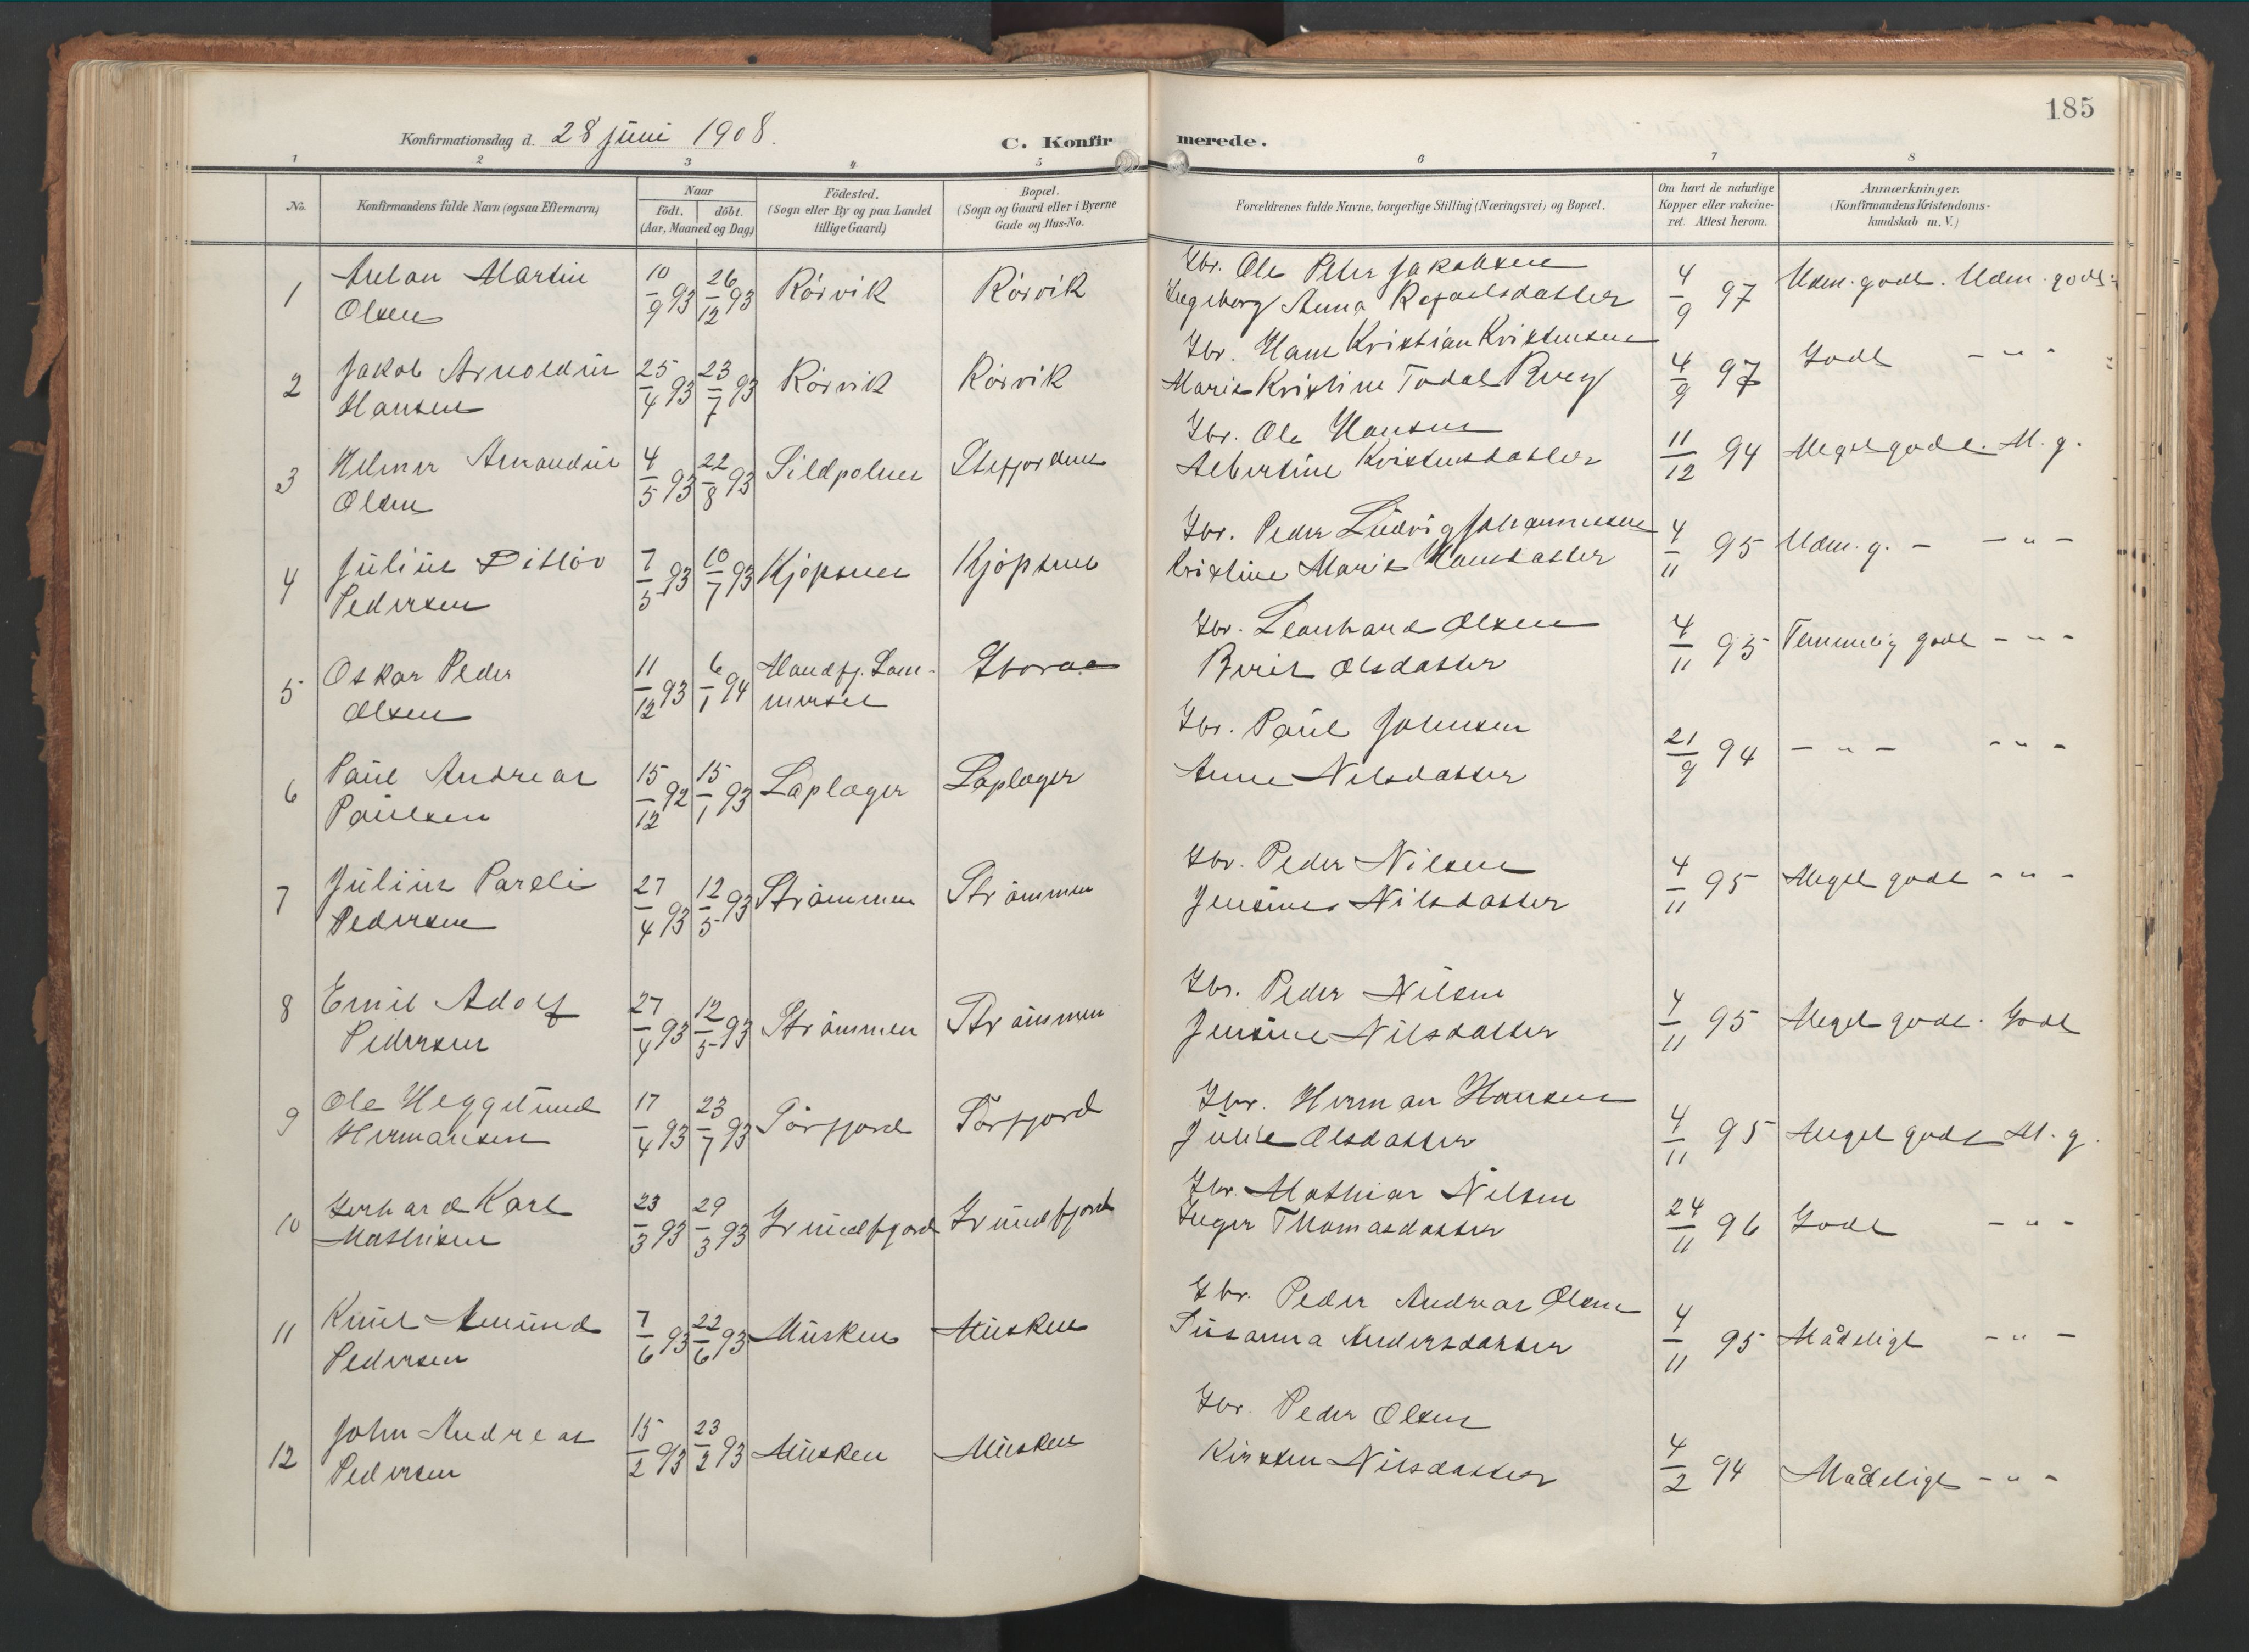 185
Konfirmationsdag d. 28 juni 1908.
C. Konfirmerede.
1 2 3 4 5 6 7 8
No.
Konfirmandens fulde Navn (ogsaa Efternavn)
Naar
födt. döbt.
(Aar, Maaned og Dag)
Födested.
(Sogn eller By og paa Landet
tillige Gaard)
Bopæl.
(Sogn og Gaard eller i Byerne
Gade og Hus-No.
Forældrenes fulde Navne, borgerlige Stilling (Næringsvei) og Bopæl.
Om havt de naturlige
Kopper eller vakcine-
ret. Attest herom.
Anmærkninger.
(Konfirmandens Kristendoms-
kundskab m. V.)
1 Anton Martin 10/9 93 26/12 93 Rörvik Rörvik Gbr. Ole Peter Jakobsen 4/9 97 Udm. godt. Udm. godt
Olsen Ingeborg Anna Rafaelsdatter
2 Jakob Arnoldus 25/4 93 23/7 93 Rörvik Rörvik Gbr. Hans Kristian Kristensen 4/9 97 Godt - " -
Hansen Marie Kristine Todal Berg
3 Hilmar Amandus 4/5 93 22/8 93 Sildpolnes Stefjorden Gbr. Ole Hansen 11/12 94 Meget godt. M. g.
Olsen Albertine Kristensdatter
4 Julius Ditlöv 7/5 93 10/7 93 Kjöpsnes Kjöpsnes Gbr. Peder Ludvig Johannessen 4/11 95 Udm. g. - - " -
Pedersen Kristine Marie Hansdatter
5 Oskar Peder 11/12 93 6/1 94 Mandfj. Lom- Storaa Gbr. Leonhard Olsen 4/11 95 Temmelig godt - " -
Olsen merset Berit Olsdatter
6 Paul Andreas 15/12 92 15/1 93 Laplæger Laplæger Gbr. Paul Johnsen 21/9 94 - " - - " -
Paulsen Anne Nilsdatter
7 Julius Pareli 27/4 93 12/5 93 Strömmen Strömmen Gbr. Peder Nilsen 4/11 95 Meget godt - " -
Pedersen Jensine Nilsdatter
8 Emil Adolf 27/4 93 12/5 93 Strömmen Strömmen Gbr. Peder Nilsen 4/11 95 Meget godt. Godt
Pedersen Jensine Nilsdatter
9 Ole Heggelund 17/4 93 23/7 93 Sörfjord Sörfjord Gbr. Herman Hansen 4/11 95 Meget godt M. g.
Hermansen Julie Olsdatter
10 Gerhard Karl 23/3 93 29/3 93 Grundfjord Grundfjord Gbr. Mathias Nilsen 24/11 96 Godt - " -
Mathisen Inger Thomasdatter
11 Knut Amund 7/6 93 22/6 93 Musken Musken Gbr. Peder Andreas Olsen 4/11 95 Mådeligt - " -
Pedersen Susanna Andersdatter
12 John Andreas 15/2 93 23/2 93 Musken Musken Gbr. Peder Olsen 4/2 94 Mådeligt - " -
Pedersen Kirsten Nilsdatter